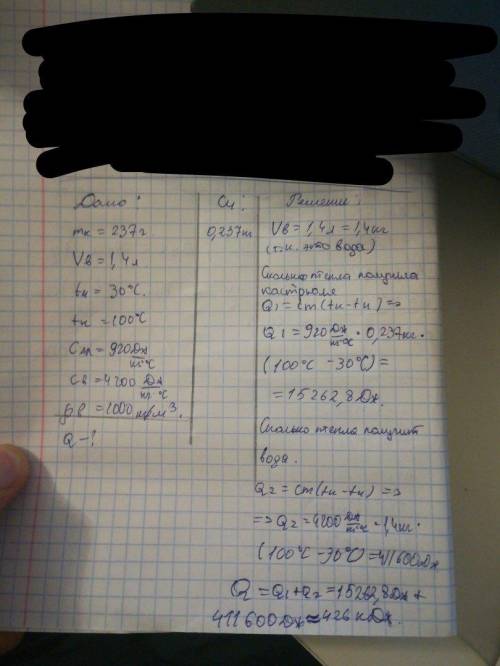 Дано:
mк = 237г.
Vв = 1,4л
tн = 30°С.
tк = 100°С
Сал = 920 Дж/кг°С
Св = 4200 Дж/кг °С
ρв = 1000 кг/м³.
Q - ?
Си:
0,237кг
Решение:
Vв = 1,4л = 1,4кг
(т.к. это вода)
Сколько тепла получила
кастрюля
Q1 = cm(tк - tн) =>
Q1 = 920 Дж/кг°С · 0,237кг ·
(100°С - 30°С) =
= 15262,8 Дж.
Сколько тепла получит
вода.
Q2 = cm(tк - tн) =>
=> Q2 = 4200 Дж/кг°С · 1,4кг ·
(100°С - 30°С) = 411600Дж
Q = Q1 + Q2 = 15262,8 Дж +
411600 Дж ≈ 426 кДж.